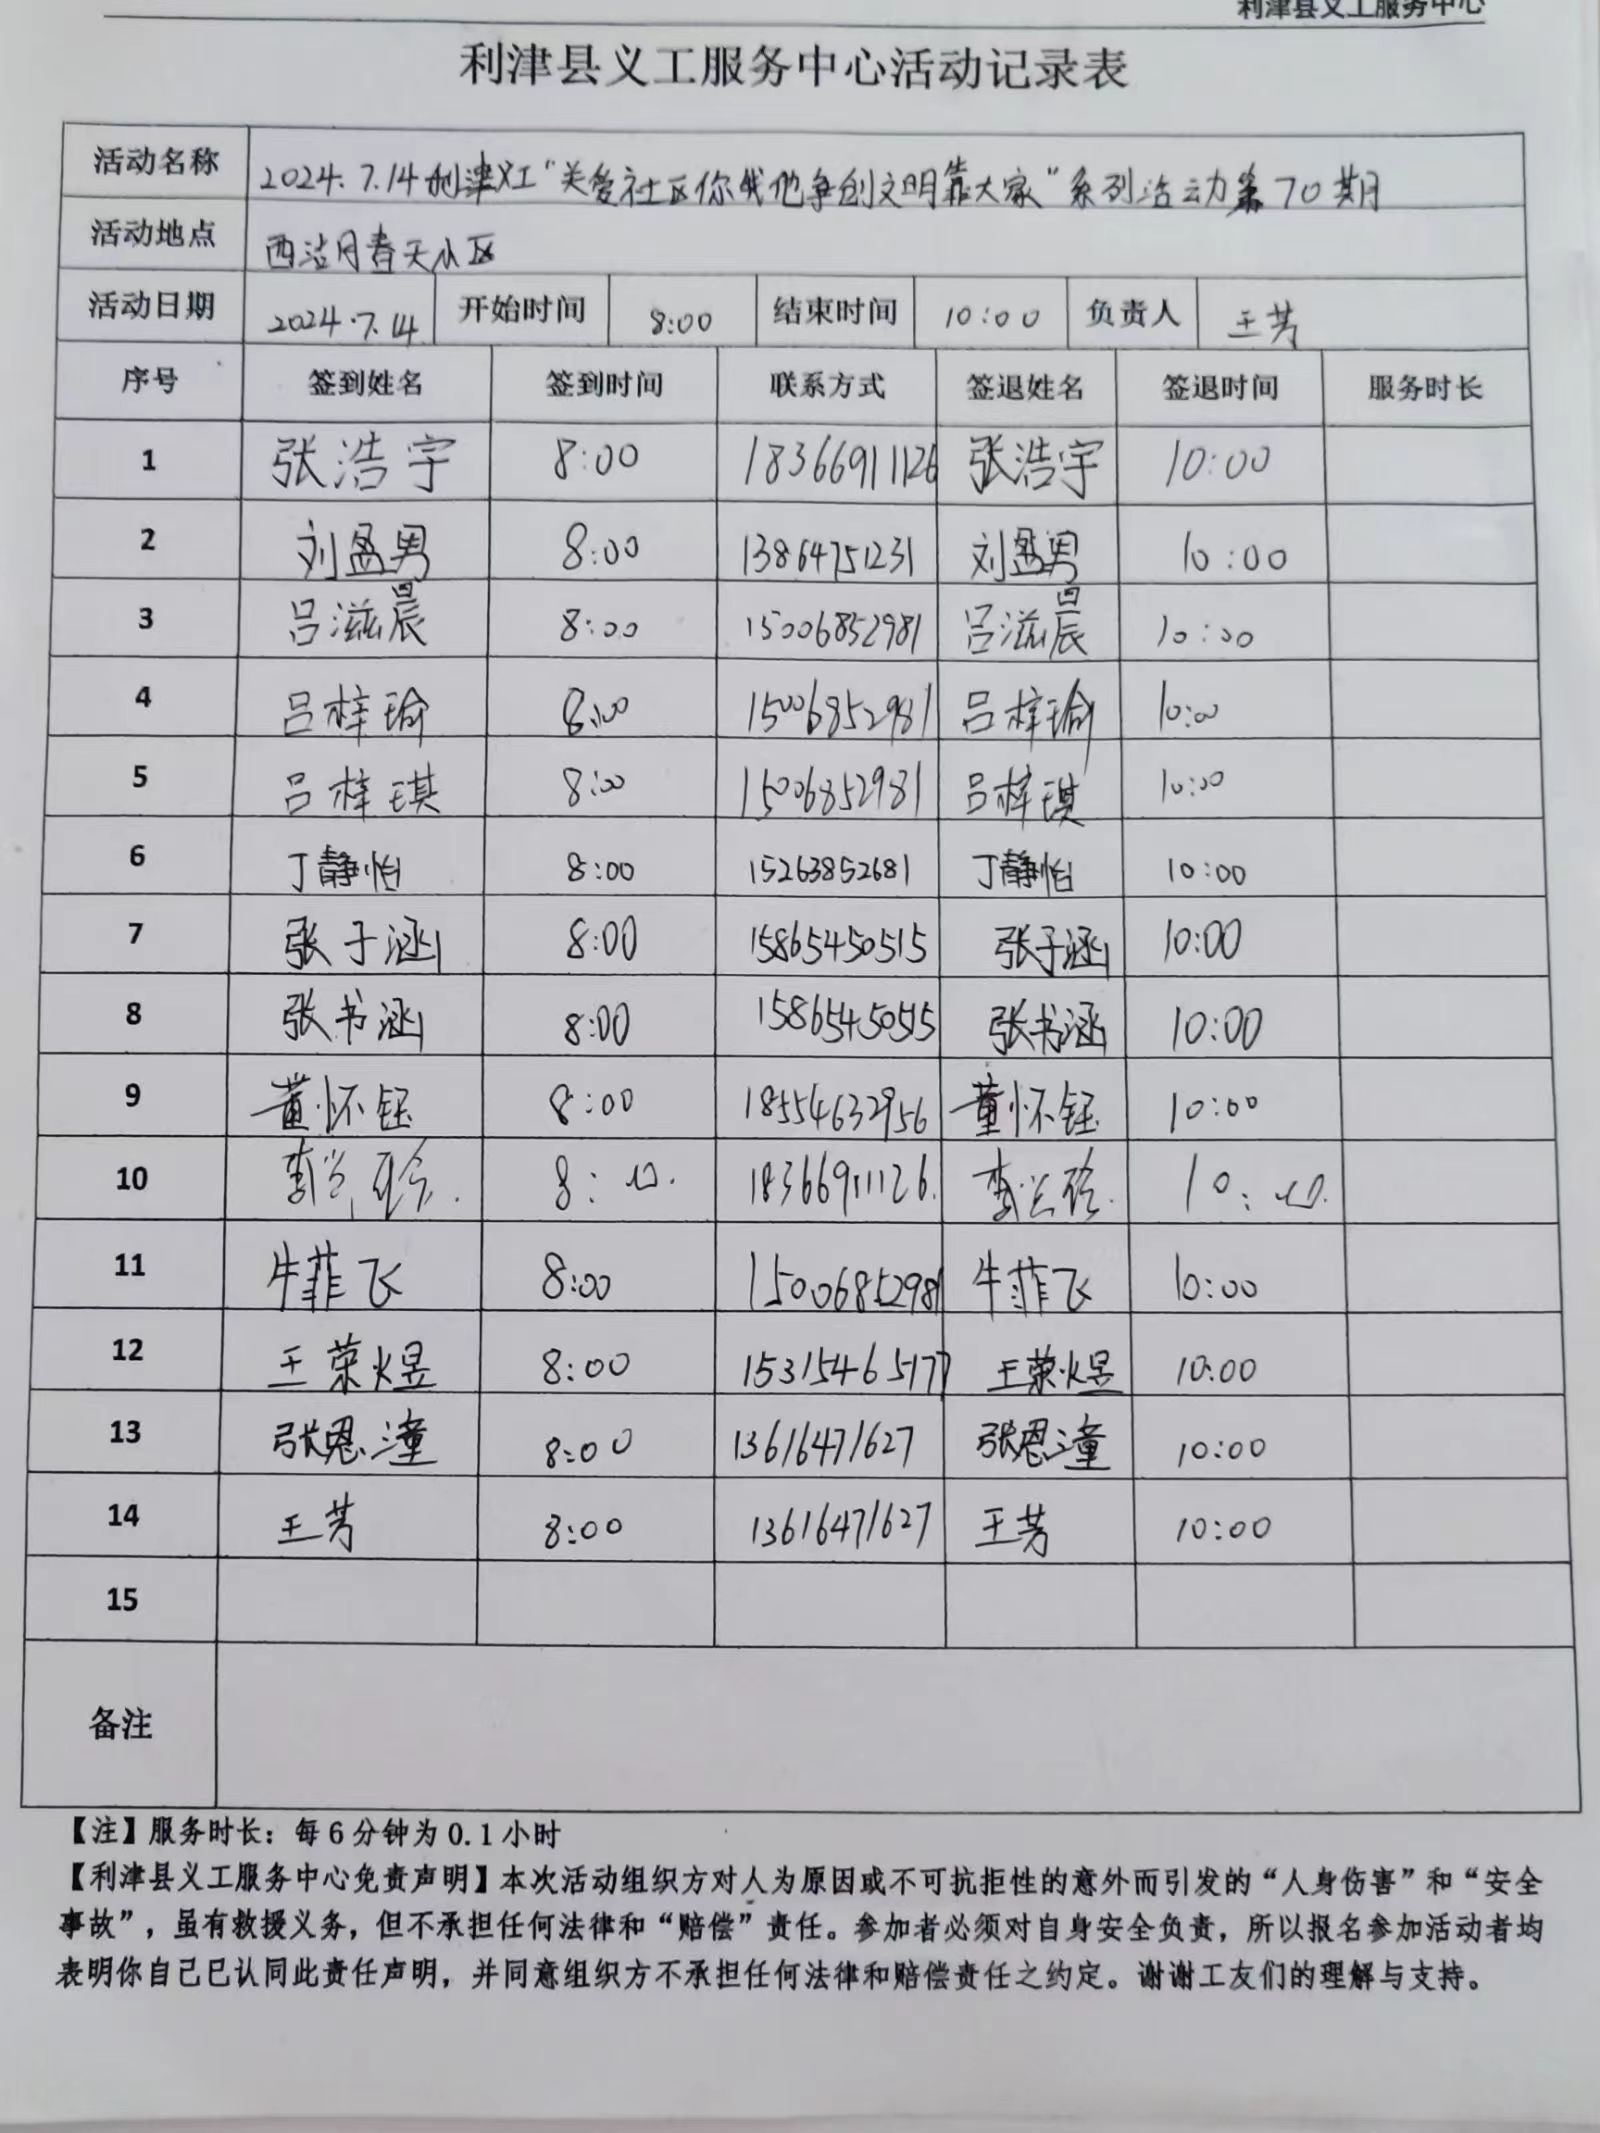 利津县义工服务中心
利津县义工服务中心活动记录表
活动名称 2024.7.14利津义工“关爱社区你我他争创文明靠大家”系列活动第70期
活动地点 西沽月春天小区
活动日期 2024.7.14 开始时间 8:00 结束时间 10:00 负责人 王芳
序号 签到姓名 签到时间 联系方式 签退姓名 签退时间 服务时长
1 张浩宇 8:00 18366911126 张浩宇 10:00
2 刘盈男 8:00 13864751231 刘盈男 10:00
3 吕滋晨 8:00 15006852981 吕滋晨 10:00
4 吕梓瑜 8:00 15006852981 吕梓瑜 10:00
5 吕梓琪 8:00 15006852981 吕梓琪 10:00
6 丁静怡 8:00 15263852681 丁静怡 10:00
7 张子涵 8:00 15865450515 张子涵 10:00
8 张书涵 8:00 15865450515 张书涵 10:00
9 董怀钰 8:00 18554632956 董怀钰 10:00
10 李 8:00. 18366911126. 李 10:00.
11 牛菲飞 8:00 15006852981 牛菲飞 10:00
12 王荣煜 8:00 15315465177 王荣煜 10:00
13 张恩潼 8:00 13616471627 张恩潼 10:00
14 王芳 8:00 13616471627 王芳 10:00
15
备注
【注】服务时长：每6分钟为0.1小时
【利津县义工服务中心免责声明】本次活动组织方对人为原因或不可抗拒性的意外而引发的“人身伤害”和“安全
事故”，虽有救援义务，但不承担任何法律和“赔偿”责任。参加者必须对自身安全负责，所以报名参加活动者均
表明你自己已认同此责任声明，并同意组织方不承担任何法律和赔偿责任之约定。谢谢工友们的理解与支持。